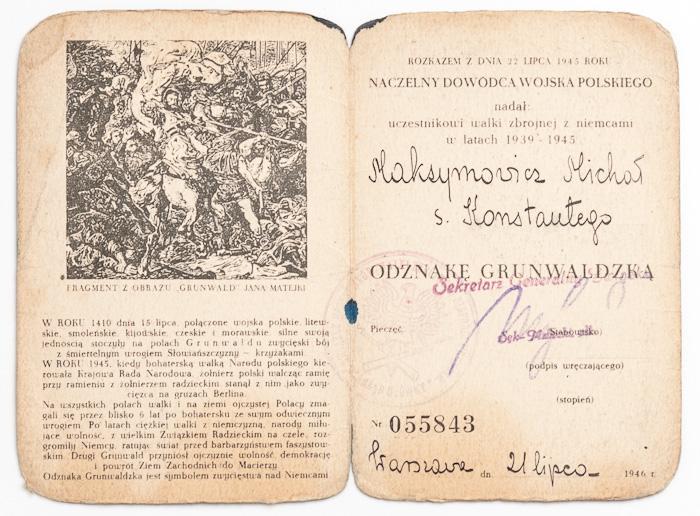 FRAGMENT Z OBRAZU „GRUNWALD" JANA MATEJKI
W ROKU 1410 dnia 15 lipca, połączone wojska polskie, litew-
skie, smoleńskie, kijowskie, czeskie i morawskie, silne swoją
jednością stoczyły na polach Grunwaldu zwycięski bój
z śmiertelnym wrogiem Słowiańszczyzny – krzyżakami.
W ROKU 1945, kiedy bohaterską walką Narodu polskiego kie-
rowała Krajowa Rada Narodowa, żołnierz polski walcząc ramię
przy ramieniu z żołnierzem radzieckim stanął z nim jako zwy-
cięzca na gruzach Berlina.
Na wszystkich polach walki i na ziemi ojczystej Polacy zma-
gali się przez blisko 6 lat po bohatersku ze swym odwiecznym
wrogiem. Po latach ciężkiej walki z niemczyzną, narody miłu-
jące wolność, z wielkim Związkiem Radzieckim na czele, roz-
gromiły Niemcy, ratując świat przed barbarzyństwem faszystow-
skim. Drugi Grunwald przyniósł ojczyźnie wolność, demokrację
i powrót Ziem Zachodnich do Macierzy
Odznaka Grunwaldzka jest symbolem zwycięstwa nad Niemcami
ROZKAZEM Z DNIA 22 LIPCA 1945 ROKU
NACZELNY DOWÓDCA WOJSKA POLSKIEGO
nadał:
uczestnikowi walki zbrojnej z niemcami
w latach 1939-1945
Maksymowicz Michał
s. Konstantego
ODZNAKĘ GRUNWALDZKĄ
Sekretarz Generalny
Pieczęć
(Stanowisko)
(podpis wręczającego)
(stopień)
Nr 055843
Warszawa dn. 21 lipca 1946 r.